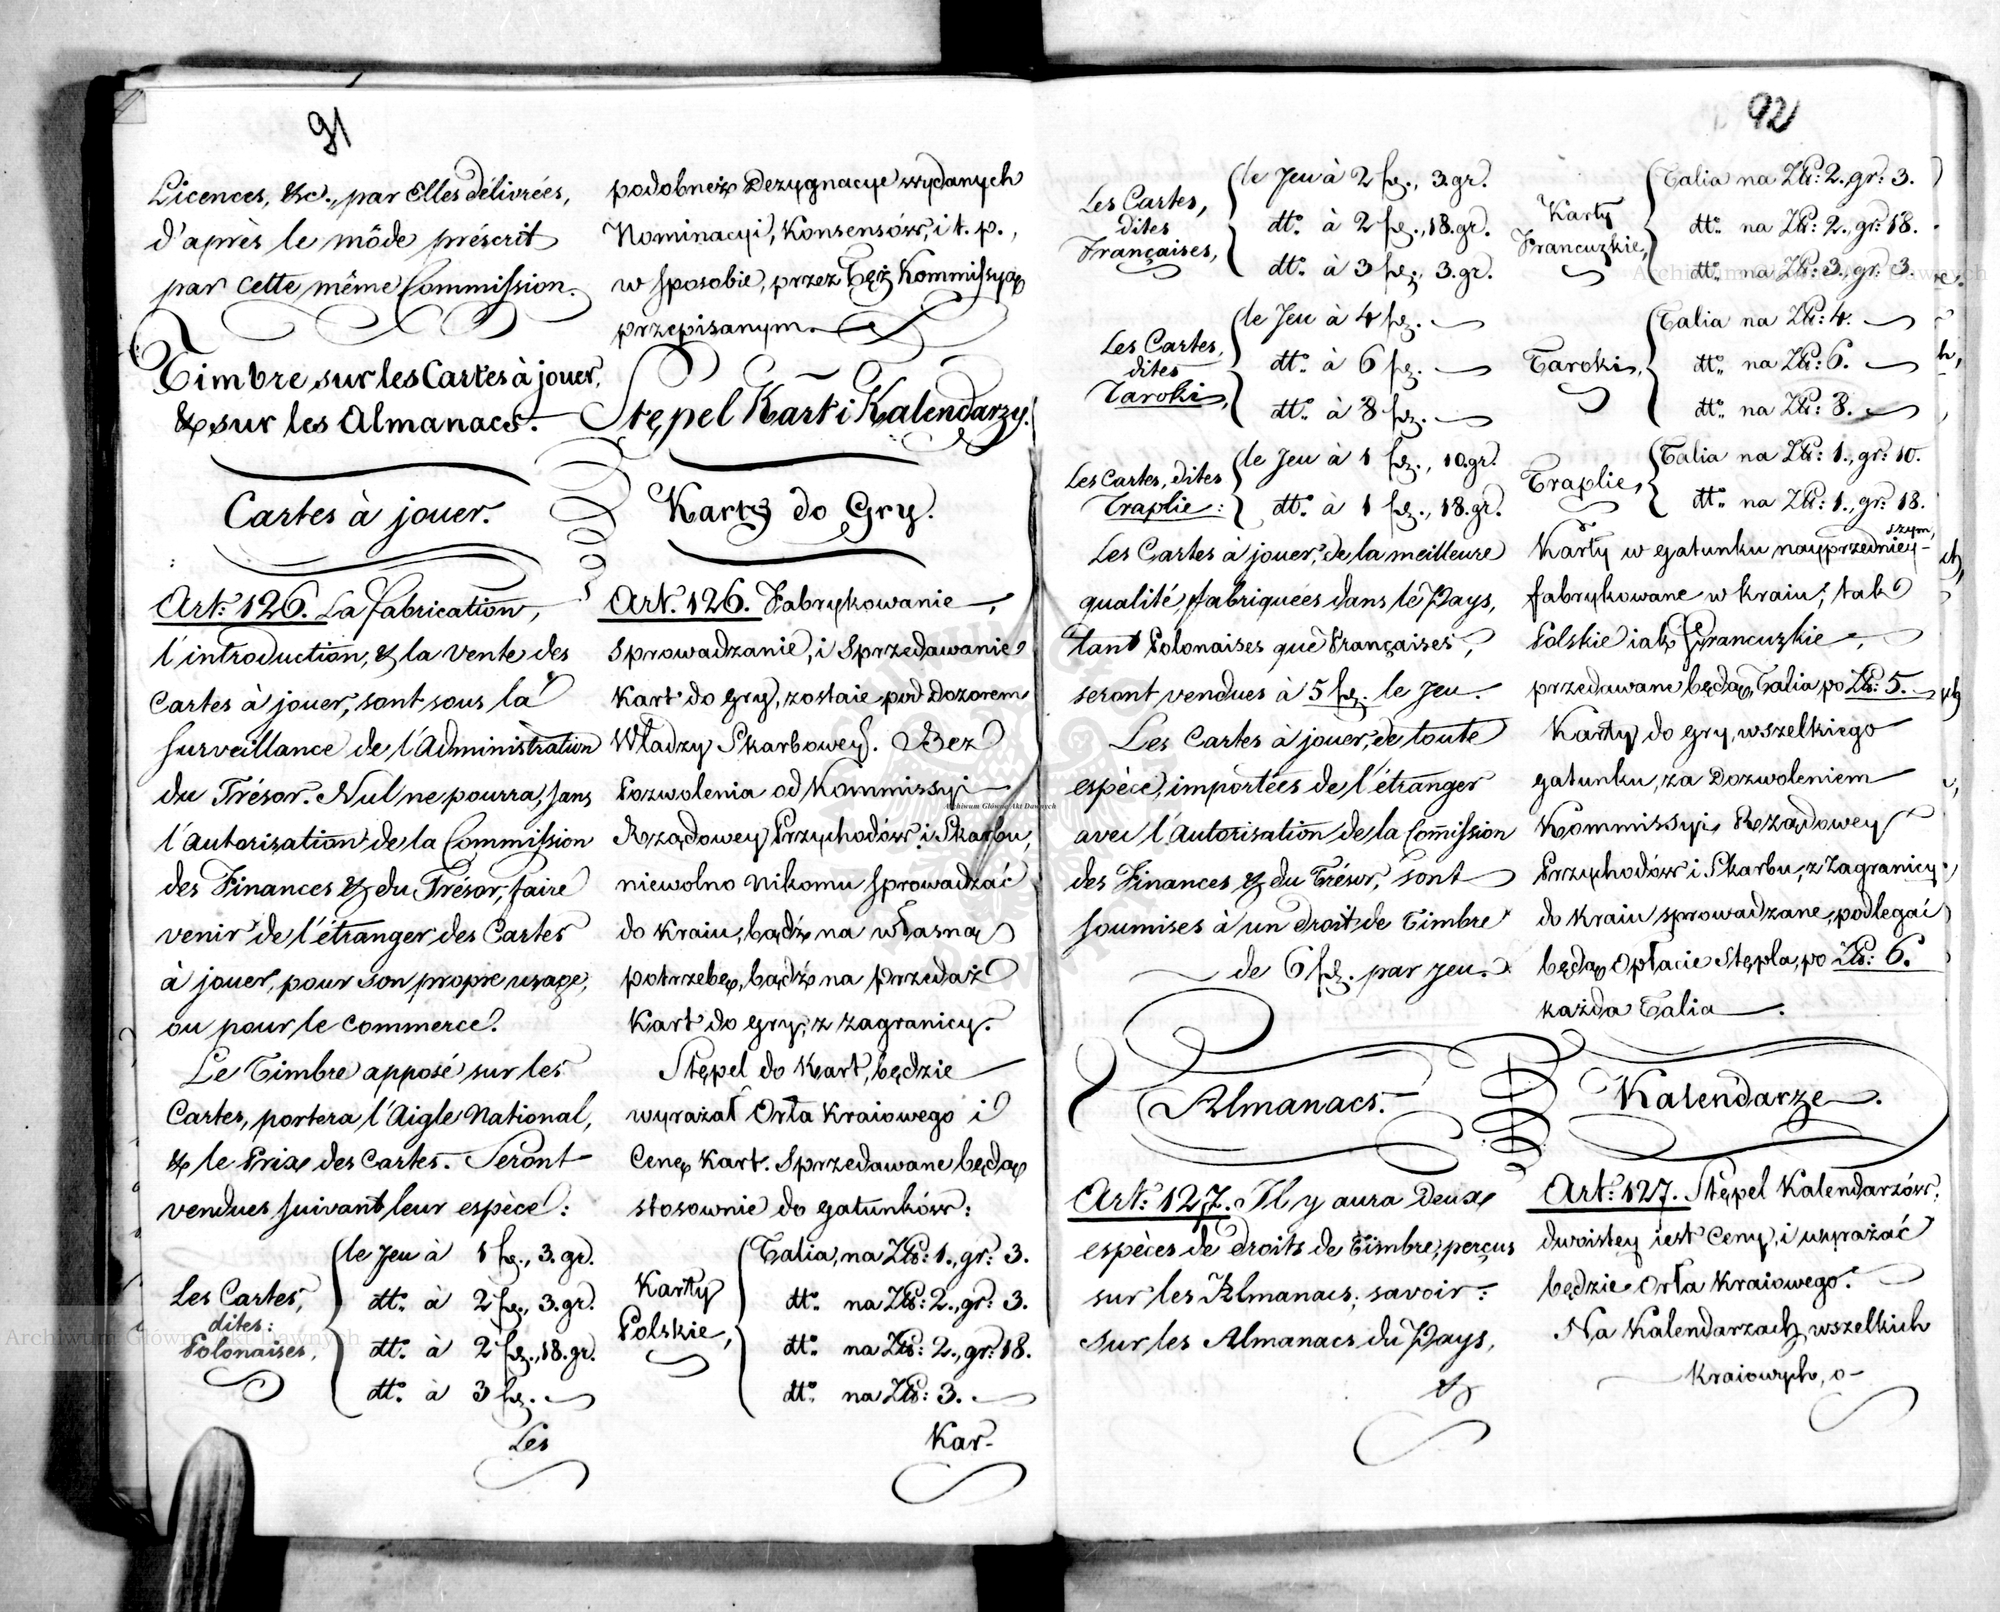 91
Licences, &c., par Elles délivrées,
d'après le môde préscrit
par cette même Commission.
Timbre sur les Cartes à jouer,
& sur les Almanacs.
Cartes à jouer.
Art: 126. La fabrication,
l'introduction, & la vente des
Cartes à jouer, sont sous la
surveillance de l'Administration
du Trésor. Nul ne pourra, sans
l'Autorisation de la Commission
des Finances & du Trésor, faire
venir de l'étranger des Cartes
à jouer, pour son propre usage,
ou pour le commerce.
Le Timbre apposé sur les
Cartes, portera l'Aigle National,
& le Prix des Cartes. Seront
vendues suivant leur espèce:
Les Cartes,
dites:
Polonaises,
le Jeu à 1 fl., 3. gr.
dtt. à 2 fl., 3. gr.
dtt. à 2 fl., 18. gr.
dtt. à 3 fl.
Les
podobnież Dezygnacye wydanych
Nominacyi, Konsensów, i t. p.,
w sposobie, przez Tęż Kommissyą
przepisanym.
Stępel Kart i Kalendarzy.
Karty do Gry.
Art. 126. Fabrykowanie,
Sprowadzanie, i Sprzedawanie
Kart do gry, zostaie pod dozorem
Władzy Skarbowey. Bez
Pozwolenia od Kommissyi
Rządowey Przychodów i Skarbu,
niewolno nikomu sprowadzać
do kraiu, bądź na własną
potrzebę, bądź na przedaż
Kart do gry, z zagranicy.
Stępel do Kart, będzie
wyrażał Orła Kraiowego i
Cenę Kart. Sprzedawane będą
stosownie do gatunków:
Karty
Polskie,
Talia, na Zł: 1., gr: 3.
dtt. na Zł: 2., gr: 3.
dtt. na Zł: 2., gr: 18.
dtt. na Zł: 3.
Kar-
92
Les Cartes,
dites
Françaises,
le Jeu à 2 fl., 3. gr.
dtt. à 2 fl., 18. gr.
dtt. à 3 fl., 3. gr.
Les Cartes,
dites
Taroki,
le Jeu à 4 fl.
dtt. à 6 fl.
dtt. à 8 fl.
Les Cartes, dites
Traplie:
le Jeu à 1 fl., 10. gr.
dtt. à 1 fl., 18. gr.
Les Cartes à jouer, de la meilleure
qualité, fabriquées dans le Pays,
tant Polonaises que Françaises,
seront vendues à 5 fl. le Jeu.
Les Cartes à jouer, de toute
espèce, importées de l'étranger
avec l'Autorisation de la Commission
des Finances & du Trésor, sont
soumises à un droit de Timbre
de 6 fl. par jeu.
Almanacs.
Art: 127. Il y aura Deux
espèces de droits de Timbre, perçus
sur les Almanacs, savoir:
Sur les Almanacs du Pays,
Karty
Francuzkie,
Talia na Zł: 2., gr: 3.
dtt. na Zł: 2., gr: 18.
dtt. na Zł: 3., gr: 3.
Taroki,
Talia na Zł: 4.
dtt. na Zł: 6.
dtt. na Zł: 8.
Traplie,
Talia na Zł: 1., gr: 10.
dtt. na Zł: 1., gr: 18.
Karty w gatunku nayprzedniey-
szym,
fabrykowane w kraiu, tak
Polskie iak Francuzkie,
przedawane będą, Talia po Zł: 5.
Karty do gry, wszelkiego
gatunku, za Dozwoleniem
Kommissyi Rządowey
Przychodów i Skarbu, z Zagranicy
do kraiu sprowadzane, podlegać
będą Opłacie Stępla, po Zł: 6.
każda Talia.
Kalendarze.
Art: 127. Stępel Kalendarzów,
dwoistey iest Ceny, i wyrażać
będzie Orła Kraiowego.
Na Kalendarzach wszelkich
Kraiowych, o-
Archiwum Główne Akt Dawnych
Archiwum Główne Akt Dawnych
Archiwum Główne Akt Dawnych